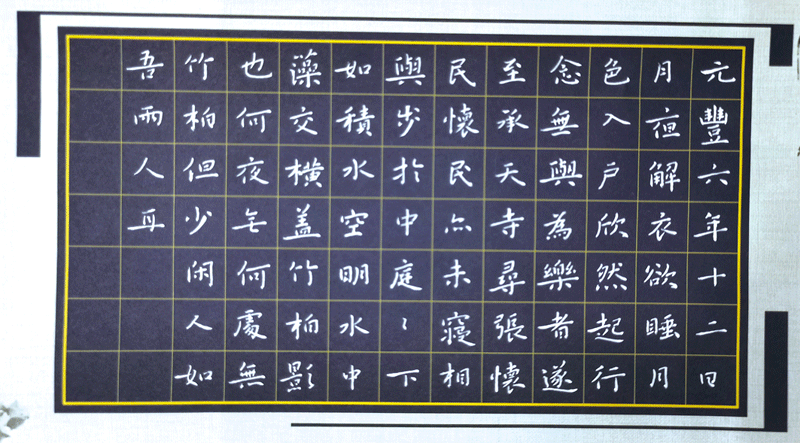 元豐六年十二日
月亱解衣欲睡月
色入户欣然起行
念無與為樂者遂
至承天寺尋張懷
民懷民亦未寢相
與步於中庭〻下
如積水空明水中
藻交橫盖竹柏影
也何夜无何處無
竹柏但少闲人如
吾兩人耳